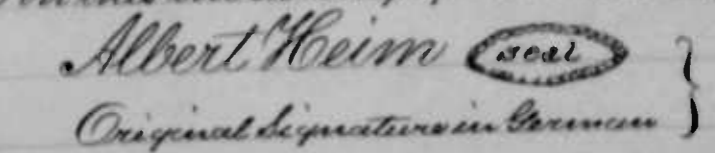 Albert Heim seal
Original Signature in German